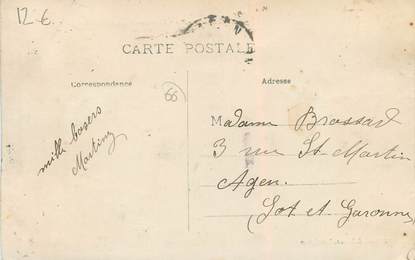 12 €
CARTE POSTALE
Correspondance
Adresse
66
mille basers
Martiny
Madame Brossard
3 rue St Martin
Agen.
Lot et Garonne